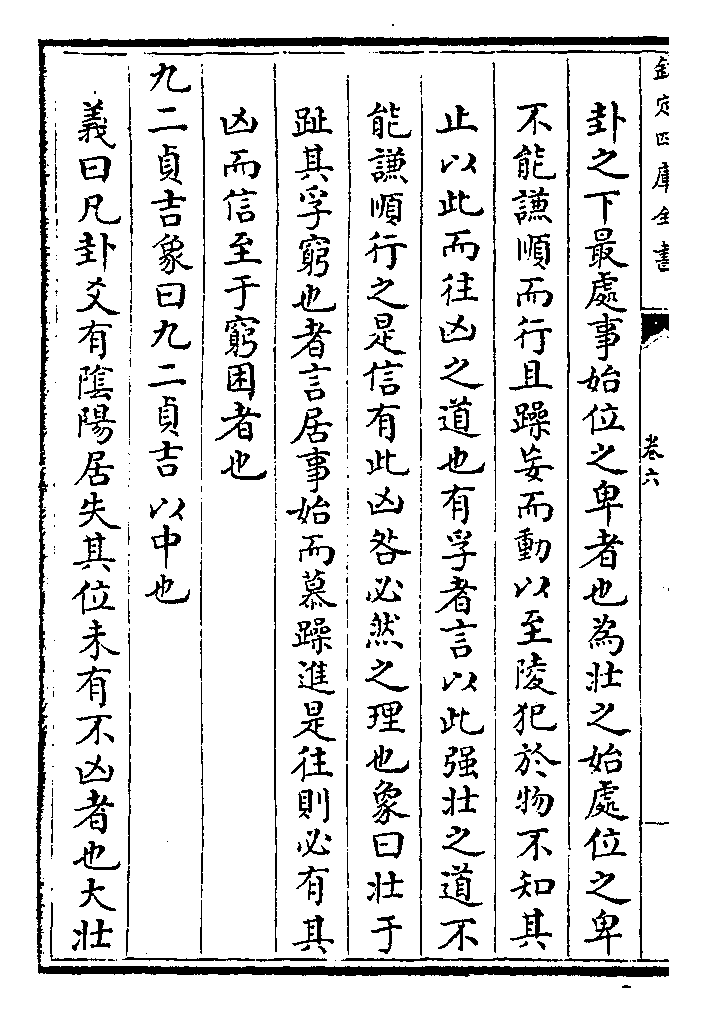 欽定四庫全書
卷六
卦之下最處事始位之卑者也為壯之始處位之卑
不能謙順而行且躁妄而動以至陵犯於物不知其
止以此而往凶之道也有孚者言以此强壯之道不
能謙順行之是信有此凶咎必然之理也象曰壯于
趾其孚窮也者言居事始而慕躁進是往則必有其
凶而信至于窮困者也
九二貞吉象曰九二貞吉以中也
義曰凡卦爻有隂陽居失其位未有不凶者也大壯